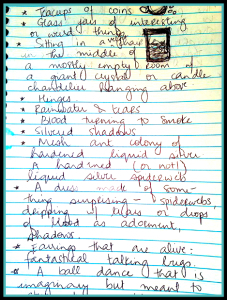 * Teacups of coins
* Glass jars of interesting
or weird things
* Sitting in a velvet chair
in the middle of
a mostly empty room of
a giant crystal or candle
chandelier hanging above
* Hinges
* Rainwater & tears
* Blood turning to smoke
* Silvered shadows
* Mesh ant colony of
hardened liquid silver
A hardened (or not)
liquid silver spiderweb
* A dress made of some-
thing surprising - spiderwebs
dripping of tulips or drops
of blood as adornment,
shadows
* Earrings that are alive:
fantastical talking bugs.
* A ball dance that is
imaginary but meant to